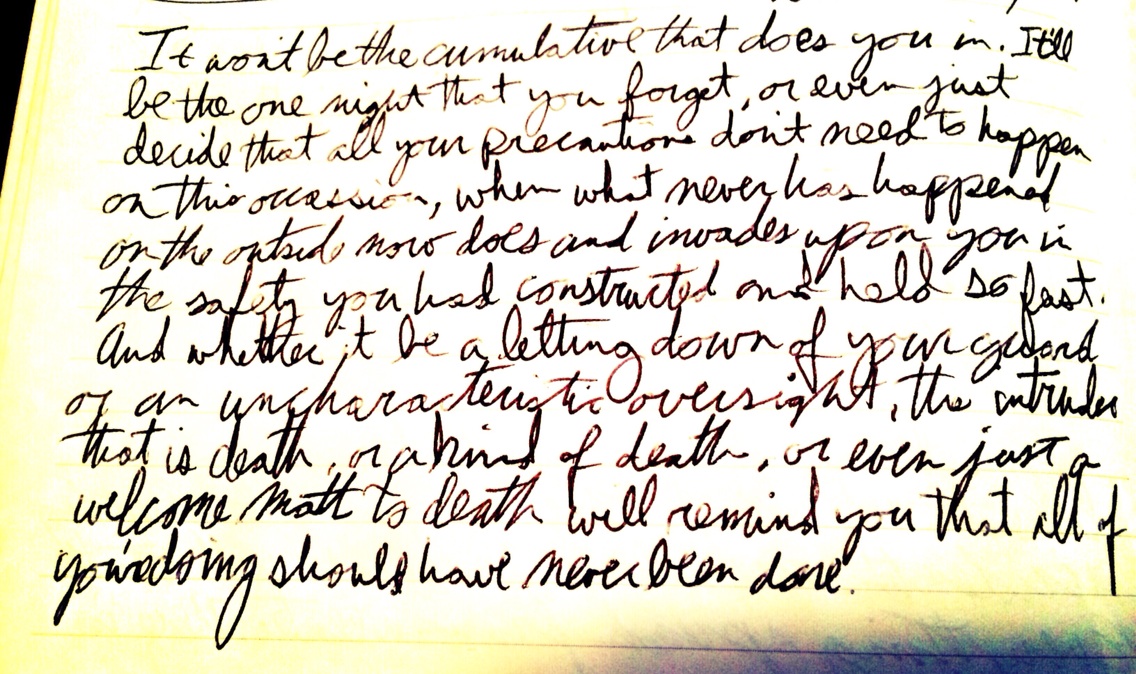 It won't be the cumulative that does you in. It'll
be the one night that you forget, or even just
decide that all your precautions don't need to happen
on this occassion, when what never has happened
on the outside now does and invades upon you in
the safety you had constructed and held so fast.
And whether it be a letting down of your guard
or an uncharacteristic oversight, the intruder
that is death, or a kind of death, or even just a
welcome matt to death will remind you that all of
doing should have never been done.